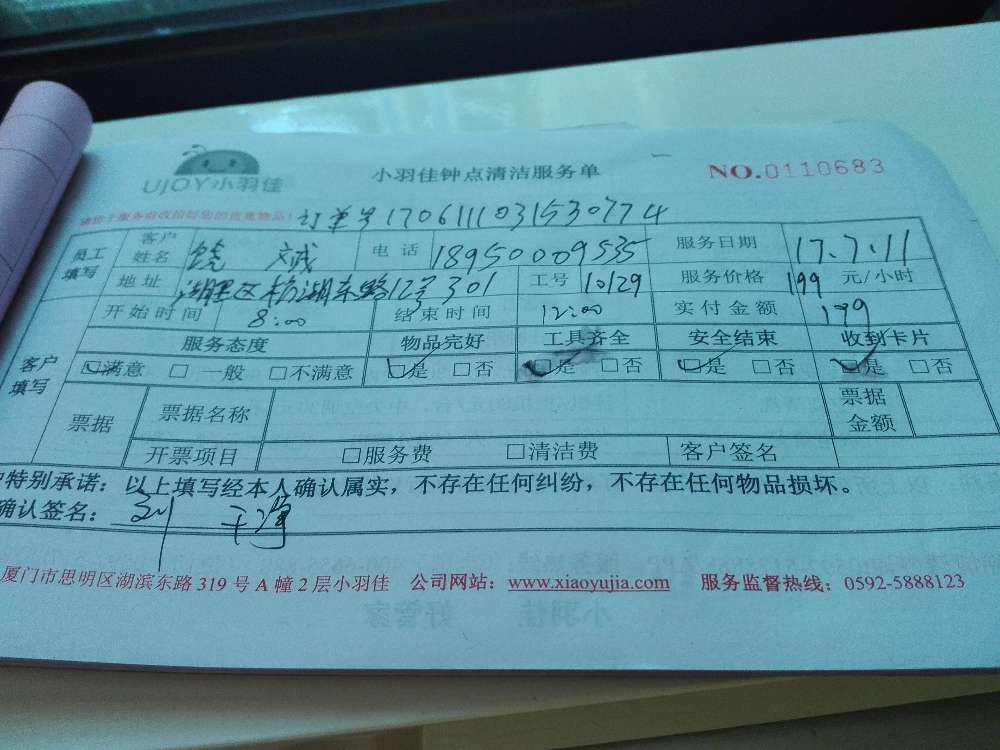 UJOY小羽佳 小羽佳钟点清洁服务单 NO.0110683
订单号1706111031530774
员工填写 客户姓名 饶 文诚 电话 18950009535 服务日期 17.7.11
地址 湖里区枋湖东路12号301 工号 10129 服务价格 199 元/小时
开始时间 8:00 结束时间 12:00 实付金额 199
客户填写 服务态度 物品完好 工具齐全 安全结束 收到卡片
☑满意 □一般 □不满意 ☑是 □否 ☑是 □否 ☑是 □否 ☑是 □否
票据 票据名称 票据金额
开票项目 □服务费 □清洁费 客户签名
特别承诺：以上填写经本人确认属实，不存在任何纠纷，不存在任何物品损坏。
确认签名：
厦门市思明区湖滨东路 319 号 A 幢 2 层小羽佳 公司网站：www.xiaoyujia.com 服务监督热线：0592-5888123